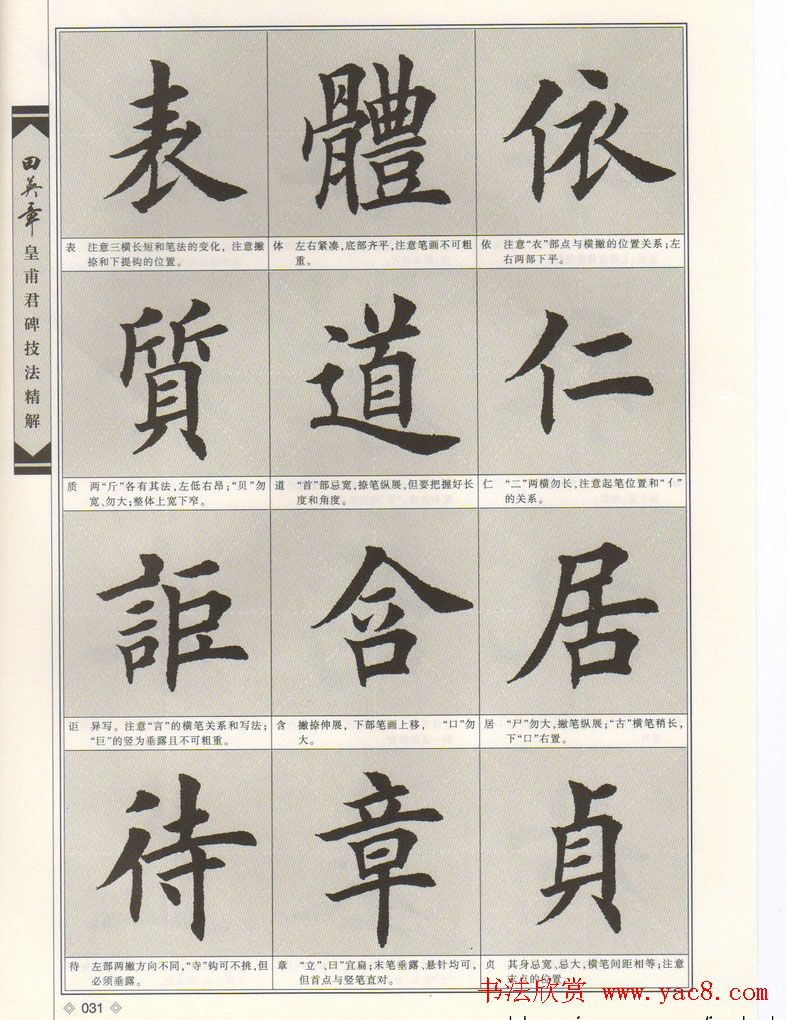 田英章
皇甫君碑技法精解
表 體 依
表 注意三横长短和笔法的变化，注意撇
捺和下提钩的位置。
体 左右紧凑，底部齐平，注意笔画不可粗
重。
依 注意“衣”部点与横撇的位置关系；左
右两部下平。
質 道 仁
质 两“斤”各有其法，左低右昂；“贝”勿
宽、勿大；整体上宽下窄。
道 “首”部忌宽，捺笔纵展，但要把握好长
度和角度。
仁 “二”两横勿长，注意起笔位置和“亻”
的关系。
詎 含 居
讵 异写。注意“言”的横笔关系和写法；
“巨”的竖为垂露且不可粗重。
含 撇捺伸展，下部笔画上移，“口”勿
大。
居 “尸”勿大，撇笔纵展；“古”横笔稍长，
下“口”右置。
待 章 貞
待 左部两撇方向不同，“寺”钩可不挑，但
必须垂露。
章 “立”、曰”宜扁；末笔垂露、悬针均可，
但首点与竖笔直对。
贞 其身忌宽、忌大，横笔间距相等；注意
末点的位置。
031
书法欣赏 www.yac8.com